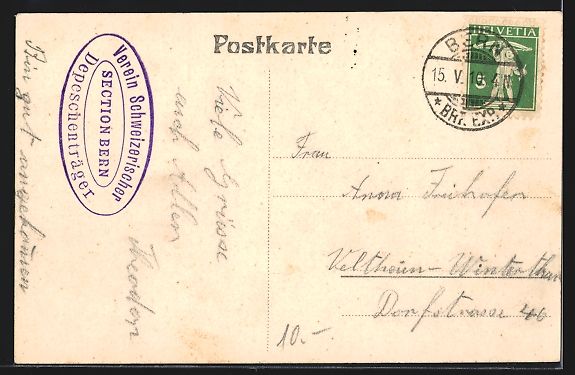 Postkarte
Verein Schweizerischer
SECTION BERN
Depeschenträger
HELVETIA
BERN
15. V. 10.
BRF. EXP.
5
Bin gut angekommen
Viele Grüsse
auch Allen
Theodor
Frau
Anna
Veltheim-Winterthur
Dorfstrasse 46
10.-